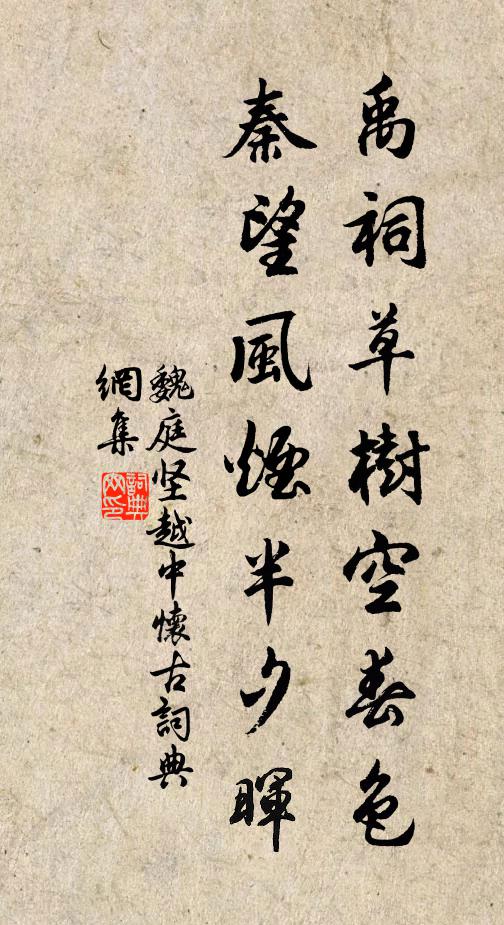 禹祠草樹空春色
秦望風煙半夕暉
魏庭坚越中懷古詞典
網集
詞典
网印